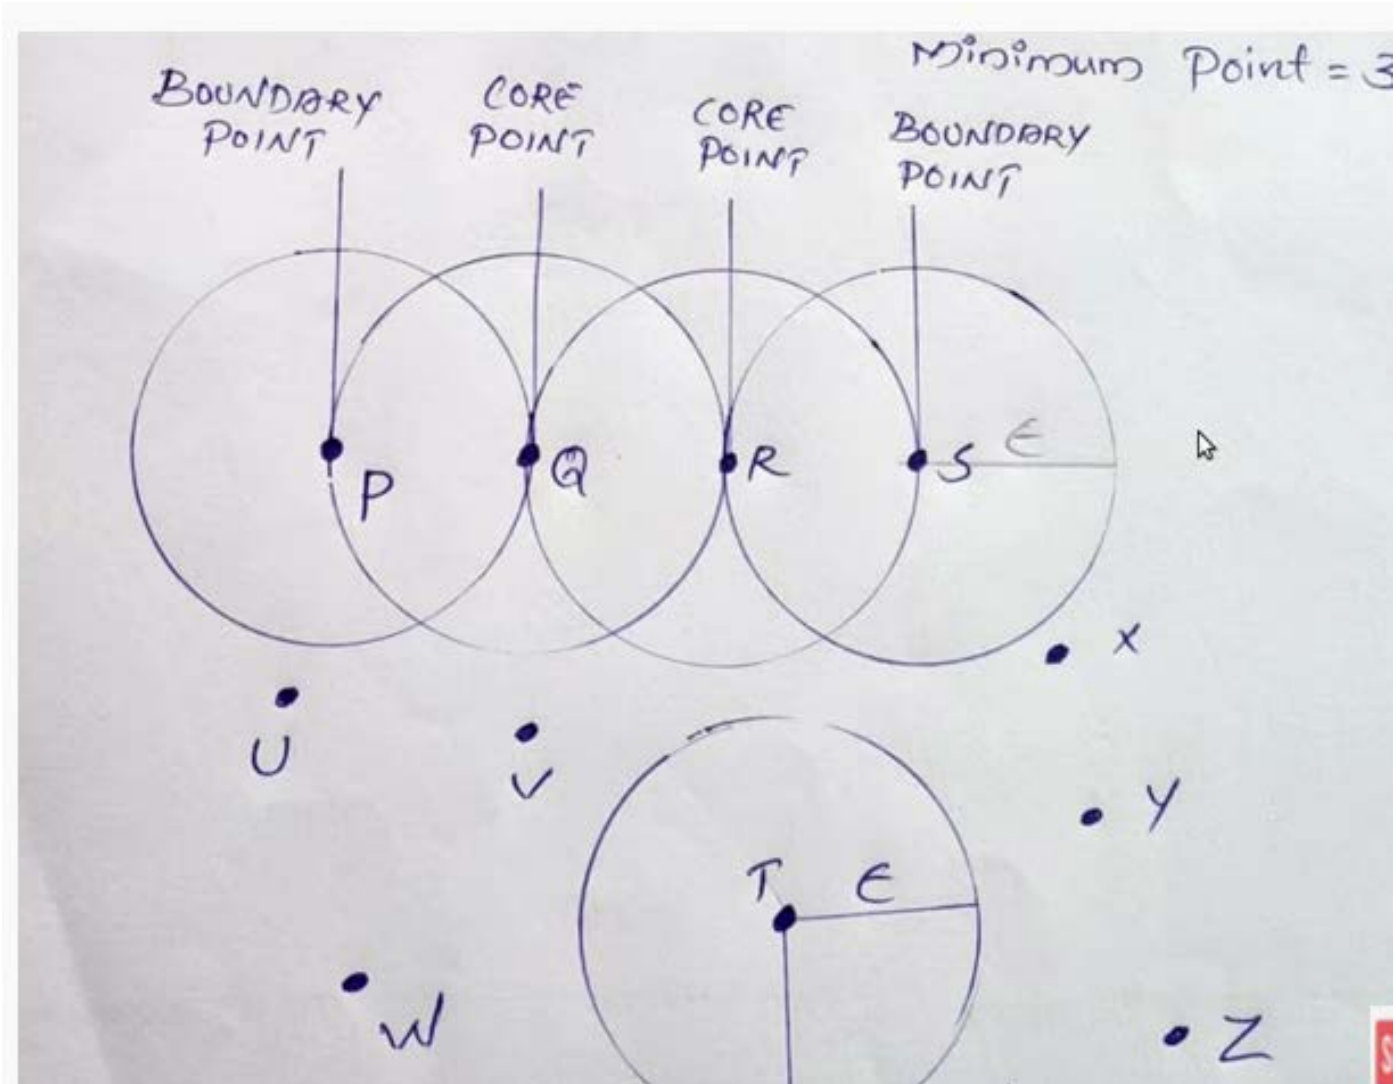 Minimum Point = 3
BOUNDARY
POINT
CORE
POINT
CORE
POINT
BOUNDARY
POINT
P
Q
R
S
ϵ
X
U
V
Y
T
ϵ
W
Z